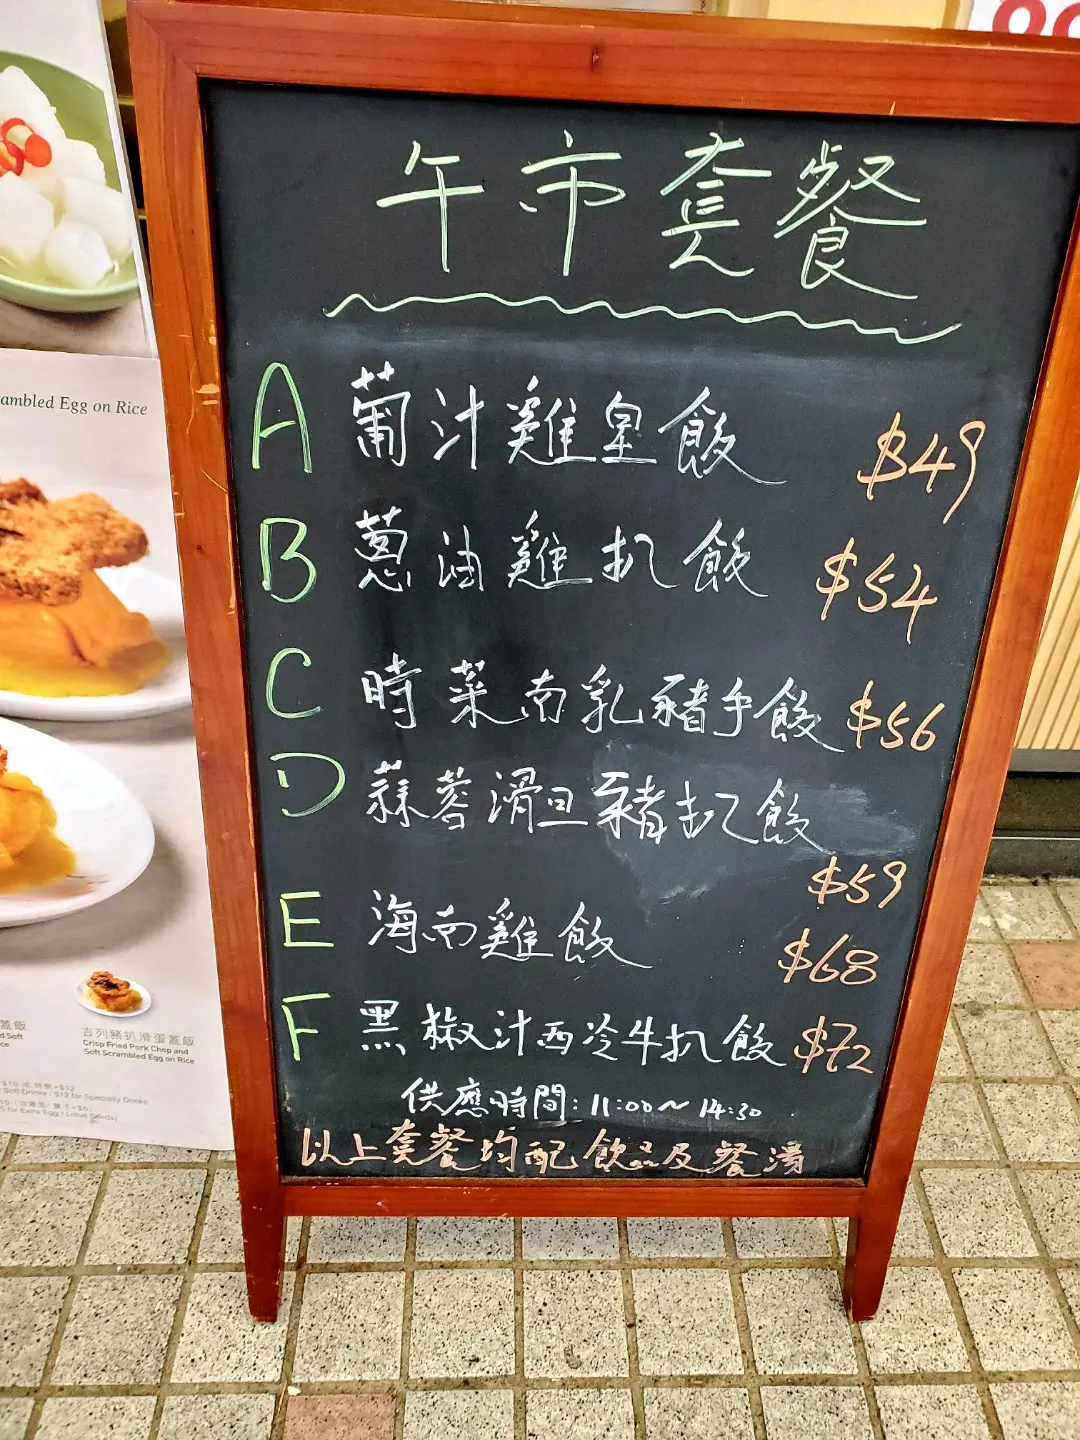 午市套餐
A 葡汁雞皇飯 $49
B 蔥油雞扒飯 $54
C 時菜南乳豬手飯 $56
D 蒜蓉滑旦豬扒飯
$59
E 海南雞飯 $68
F 黑椒汁西冷牛扒飯 $72
供應時間：11:00～14:30
以上套餐均配飲品及餐湯
ambled Egg on Rice
蓋飯
d Soft
ce
吉列豬扒滑蛋蓋飯
Crisp Fried Pork Chop and
Soft Scrambled Egg on Rice
Soft Drinks / $12 for Specialty Drinks
for Extra Egg / Lotus Seeds)